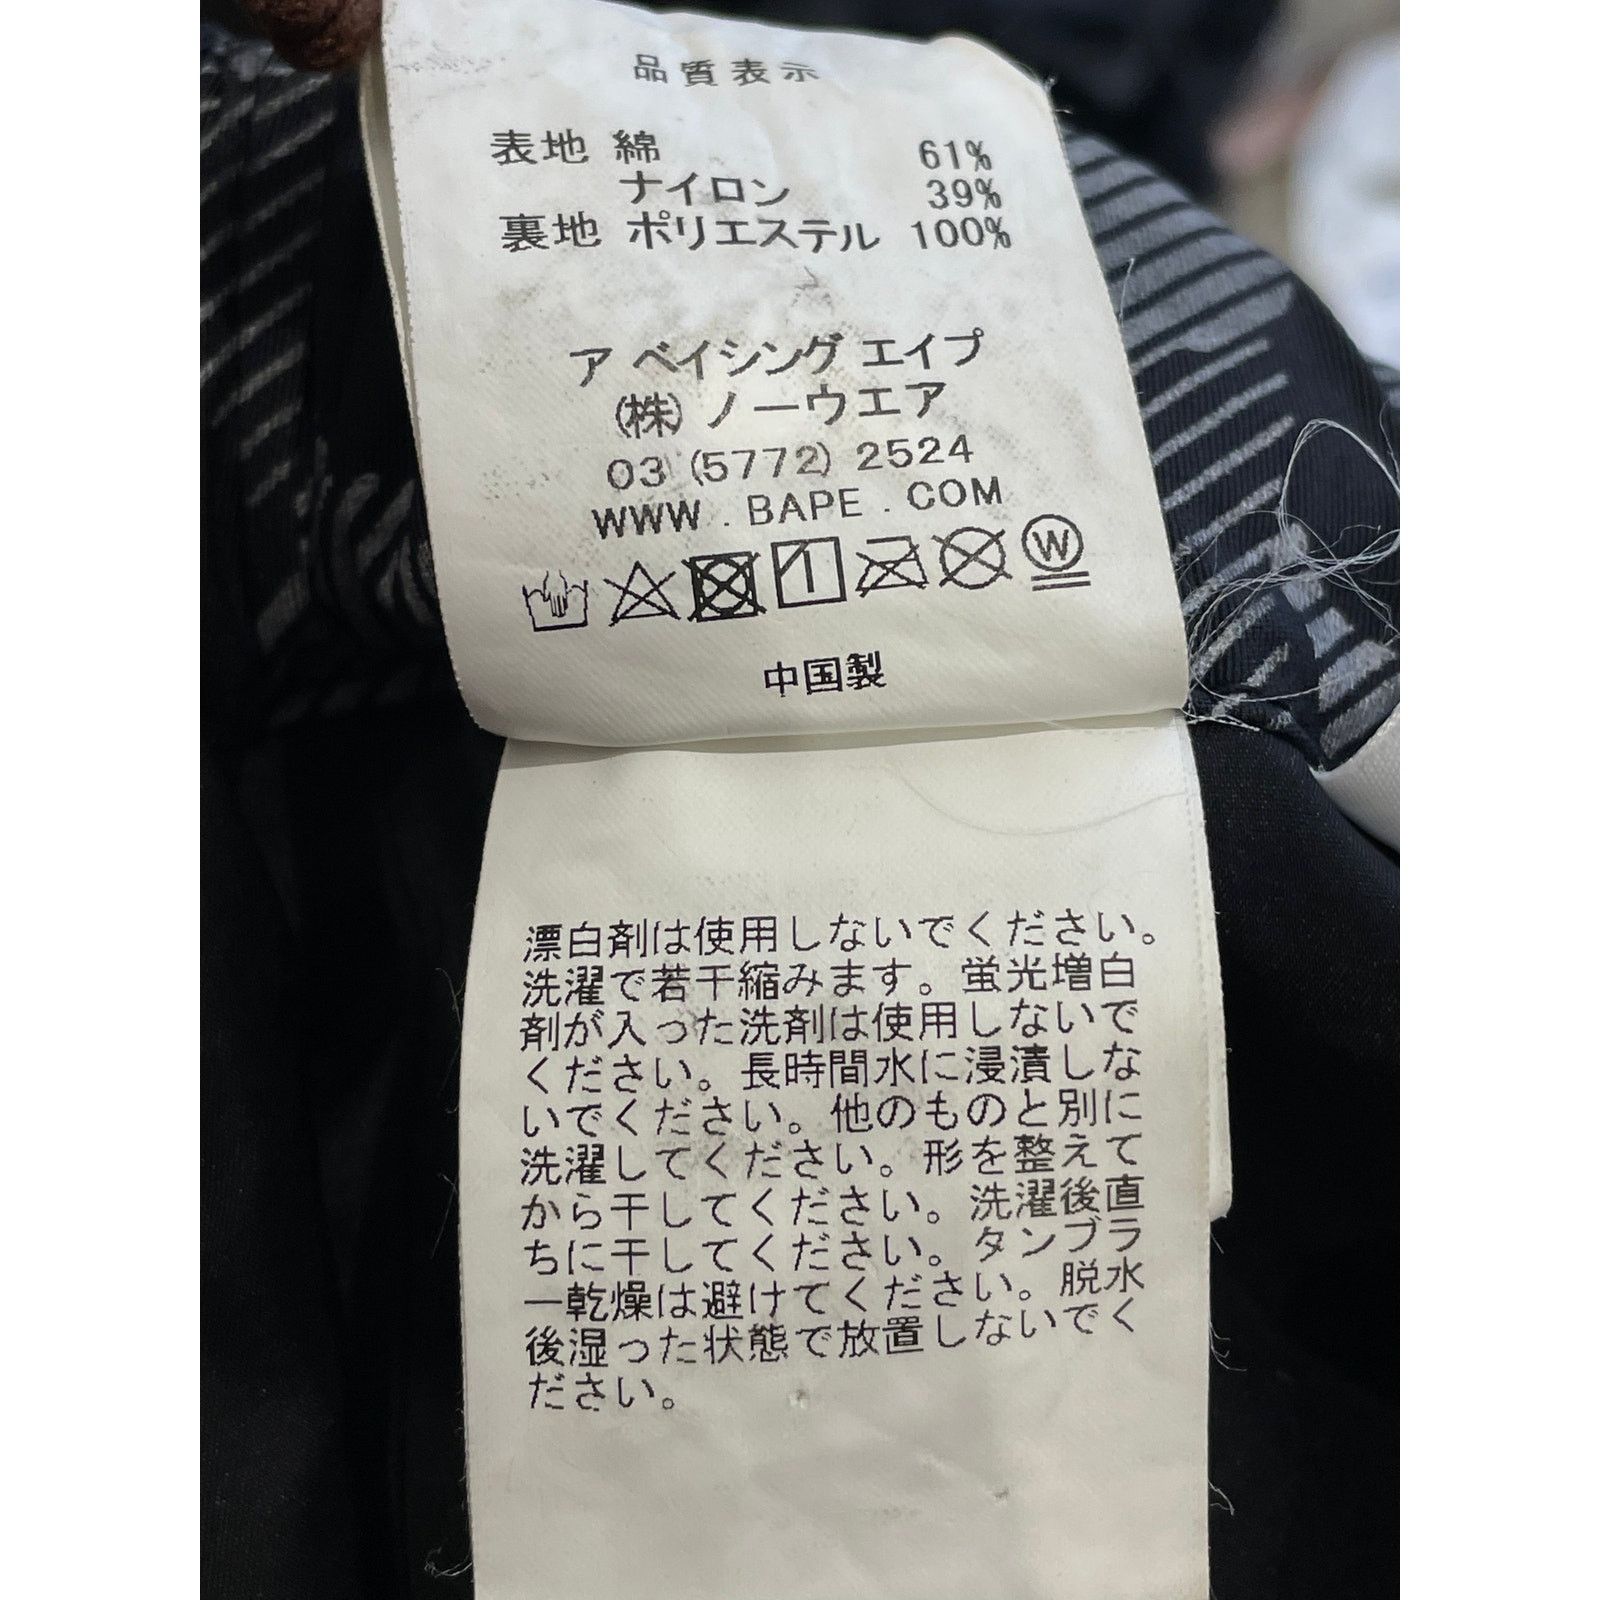 品質表示
表地 綿 61%
ナイロン 39%
裏地 ポリエステル 100%
ア ベイシング エイプ
(株) ノーウエア
03 (5772) 2524
WWW . BAPE . COM
W
中国製
漂白剤は使用しないでください。
洗濯で若干縮みます。蛍光増白
剤が入った洗剤は使用しないで
ください。長時間水に浸漬しな
いでください。他のものと別に
洗濯してください。形を整えて
から干してください。洗濯後直
ちに干してください。タンブラ
ー乾燥は避けてください。脱水
後湿った状態で放置しないでく
ださい。